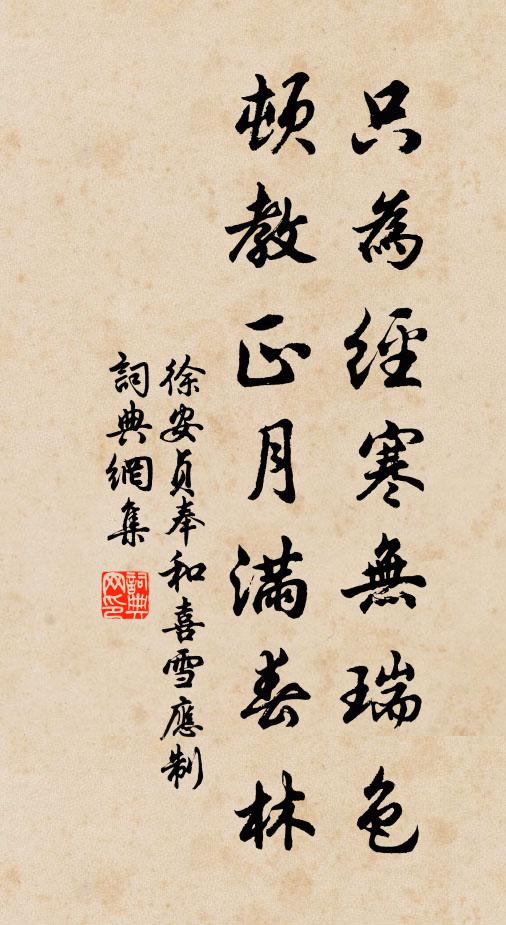 只為經寒無瑞色
頓教正月滿春林
徐安貞奉和喜雪應制
詞典網集
詞典网印